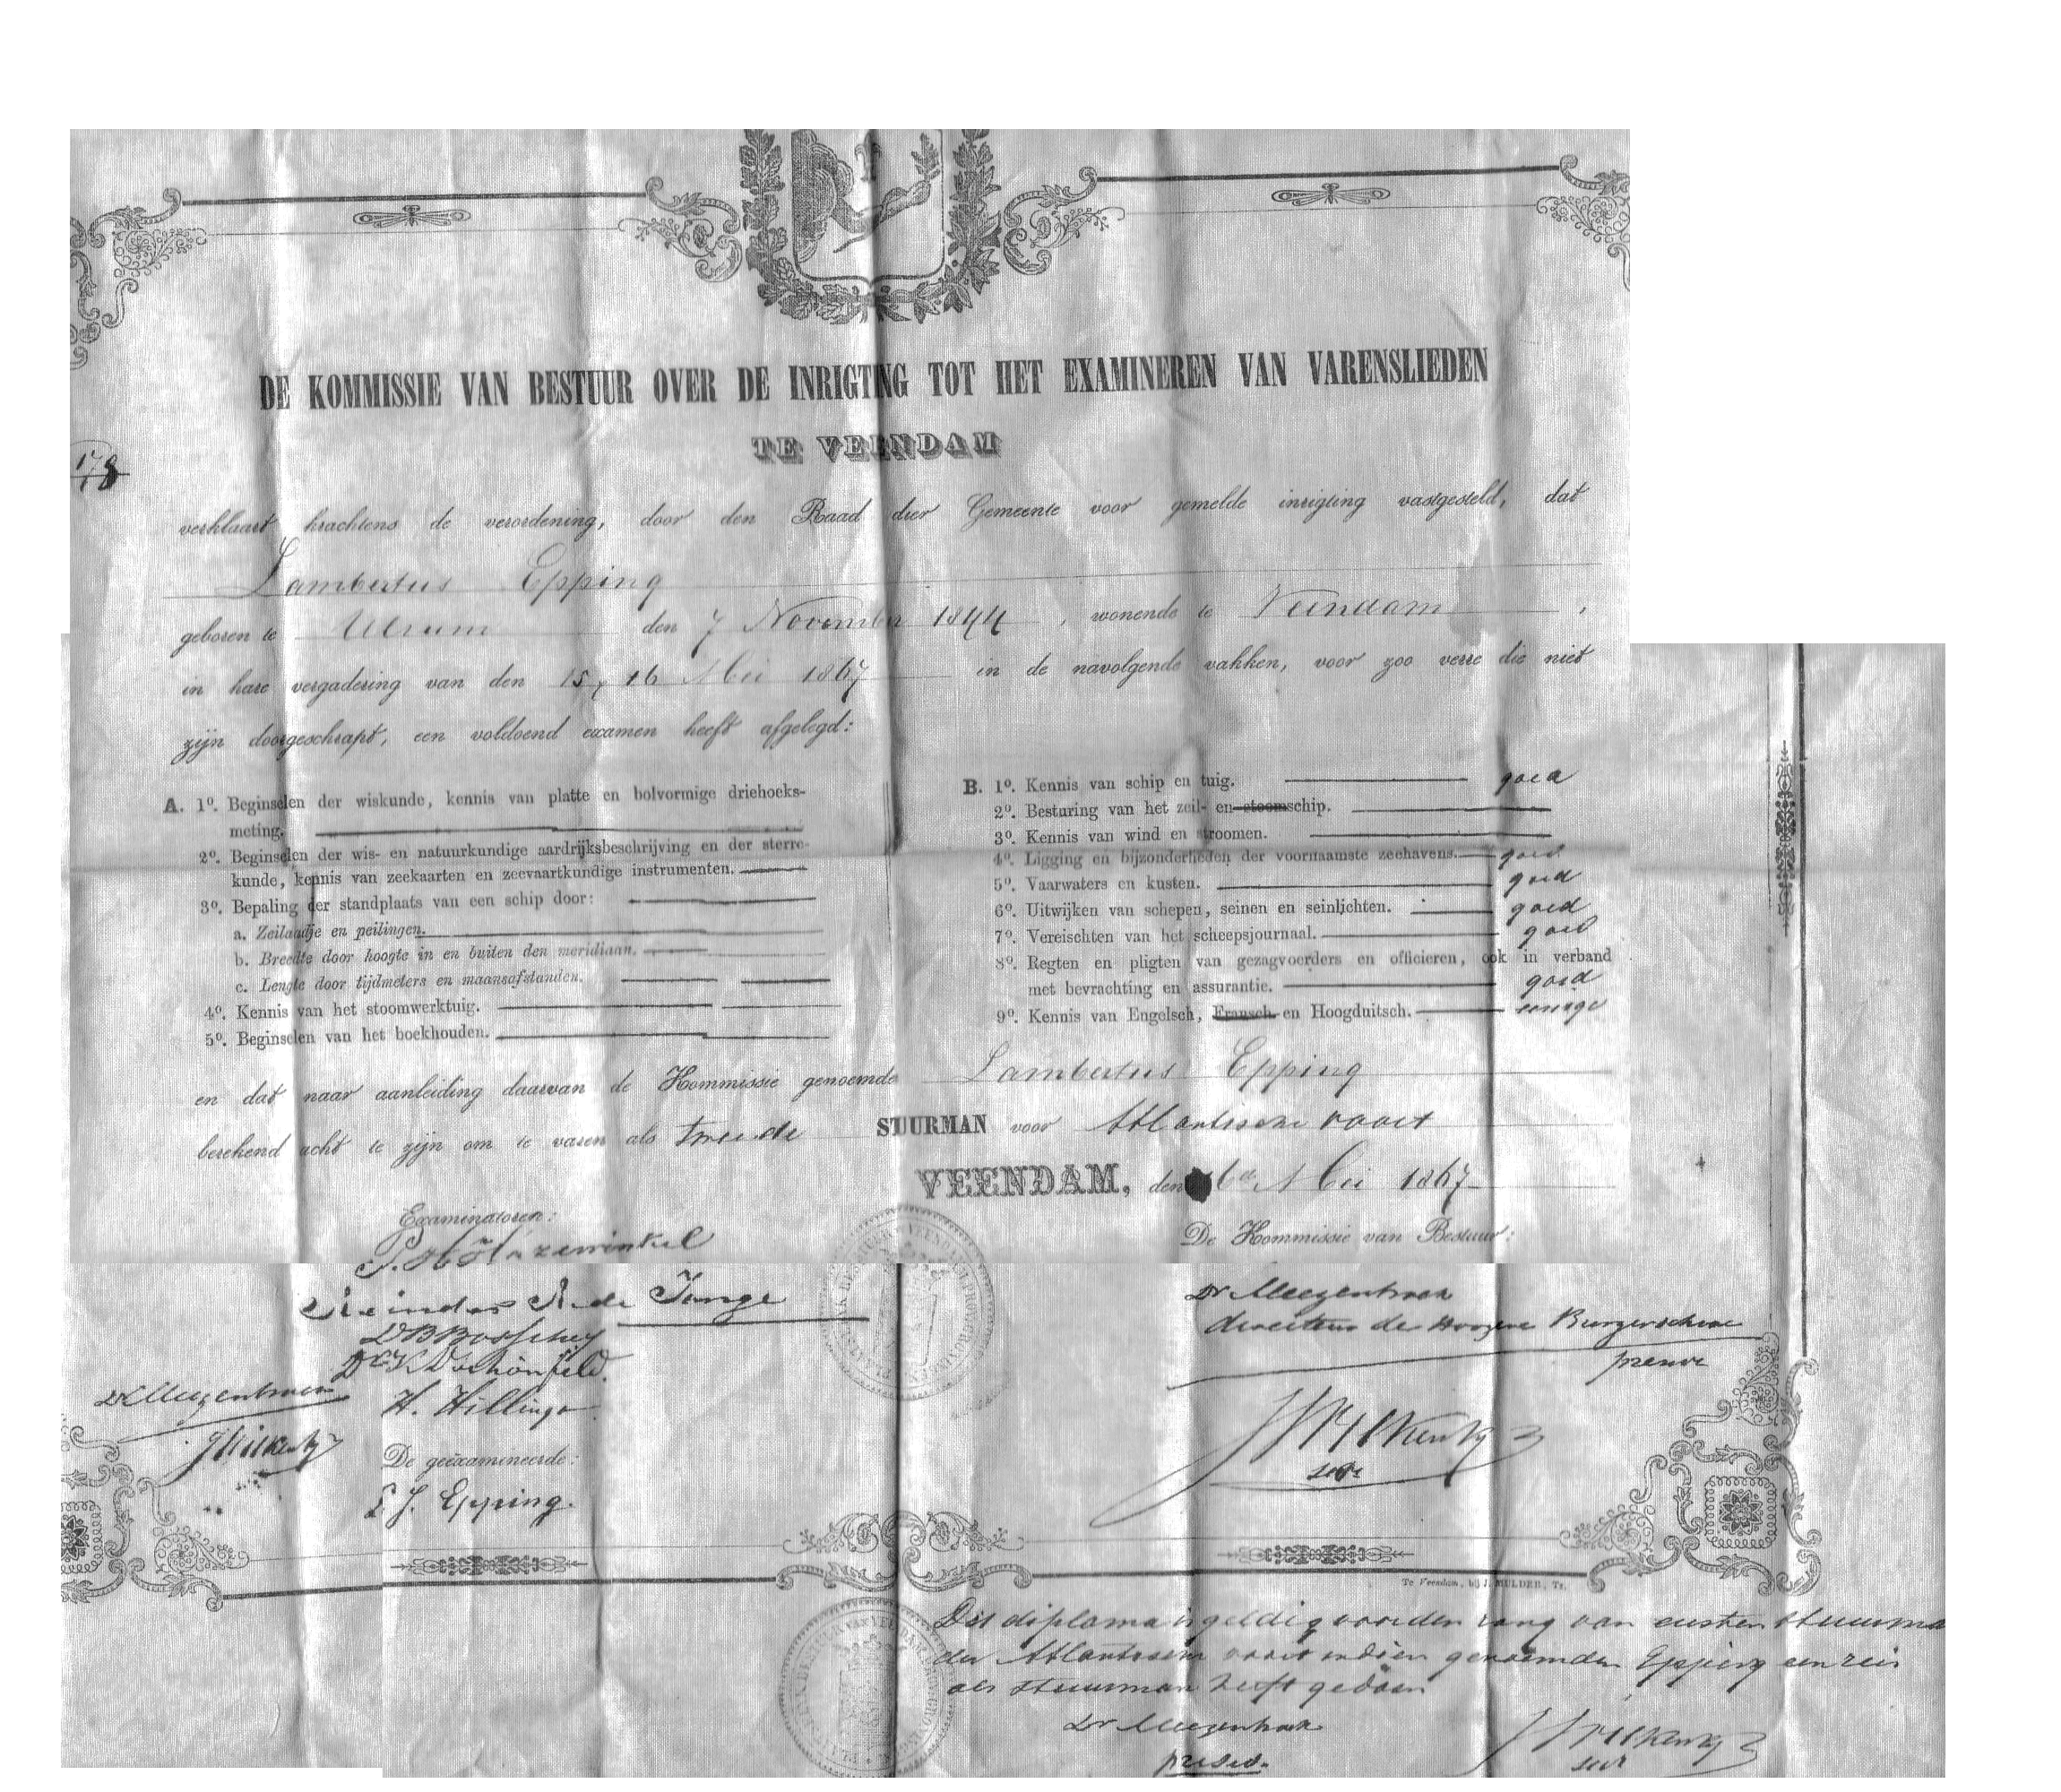 DE KOMMISSIE VAN BESTUUR OVER DE INRIGTING TOT HET EXAMINEREN VAN VARENSLIEDEN
TE VEENDAM
178
verklaart krachtens de verordening, door den Raad dier Gemeente voor gemelde inrigting vastgesteld, dat
Lambertus Epping
geboren te Ulrum den 7 November 1844, wonende te Veendam,
in hare vergadering van den 15, 16 Mei 1867 in de navolgende vakken, voor zoo verre die niet
zijn doorgeschrapt, een voldoend examen heeft afgelegd:
A. 1º. Beginselen der wiskunde, kennis van platte en bolvormige driehoeks-
meting.
2º. Beginselen der wis- en natuurkundige aardrijksbeschrijving en der sterre-
kunde, kennis van zeekaarten en zeevaartkundige instrumenten.
3º. Bepaling der standplaats van een schip door:
a. Zeilaadje en peilingen.
b. Breedte door hoogte in en buiten den meridiaan.
c. Lengte door tijdmeters en maansafstanden.
4º. Kennis van het stoomwerktuig.
5º. Beginselen van het boekhouden.
B. 1º. Kennis van schip en tuig. goed
2º. Besturing van het zeil- en stoomschip.
3º. Kennis van wind en stroomen.
4º. Ligging en bijzonderheden der voornaamste zeehavens. goed
5º. Vaarwaters en kusten. goed
6º. Uitwijken van schepen, seinen en seinlichten. goed
7º. Vereischten van het scheepsjournaal. goed
8º. Regten en pligten van gezagvoerders en officieren, ook in verband
met bevrachting en assurantie. goed
9º. Kennis van Engelsch, Fransch en Hoogduitsch. eenige
en dat naar aanleiding daarvan de Kommissie genoemde Lambertus Epping
berekend acht te zijn om te varen als tweede STUURMAN voor Atlantische vaart
VEENDAM, den 16de Mei 1867
Examinatoren:
P. H. Hazewinkel
Reinder R. de Jonge
H. Hillinga
De geëxamineerde:
L J. Epping.
De Kommissie van Bestuur:
Dr
directeur der Hoogere Burgerschool
preses
secr
Te Veendam, bij J. MULDER, Tz.
Dit diploma is geldig voor den rang van eersten stuurma
der Atlantische vaart indien genoemden Epping een reis
als stuurman heeft gedaan
Dr
preses.
secr